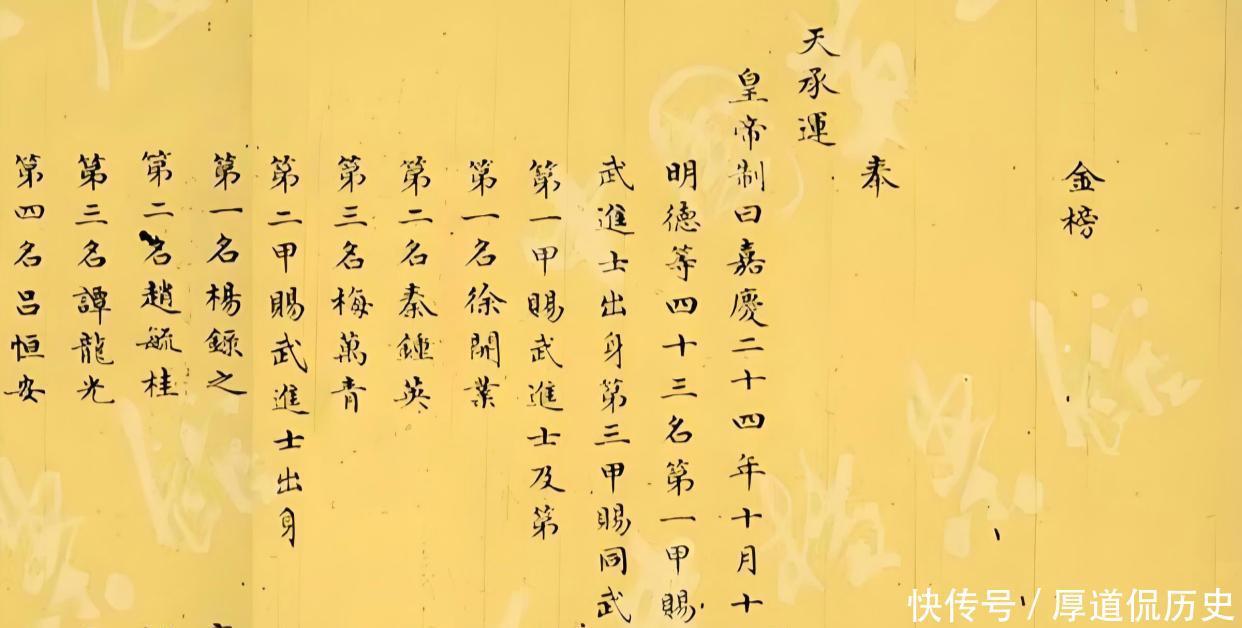 金榜
奉
天承運
皇帝制曰嘉慶二十四年十月十
明德等四十三名第一甲賜
武進士出身第三甲賜同武
第一甲賜武進士及第
第一名徐開業
第二名秦鍾英
第三名梅萬青
第二甲賜武進士出身
第一名楊錄之
第二名趙毓桂
第三名譚龍光
第四名呂恒安
快传号/厚道侃历史